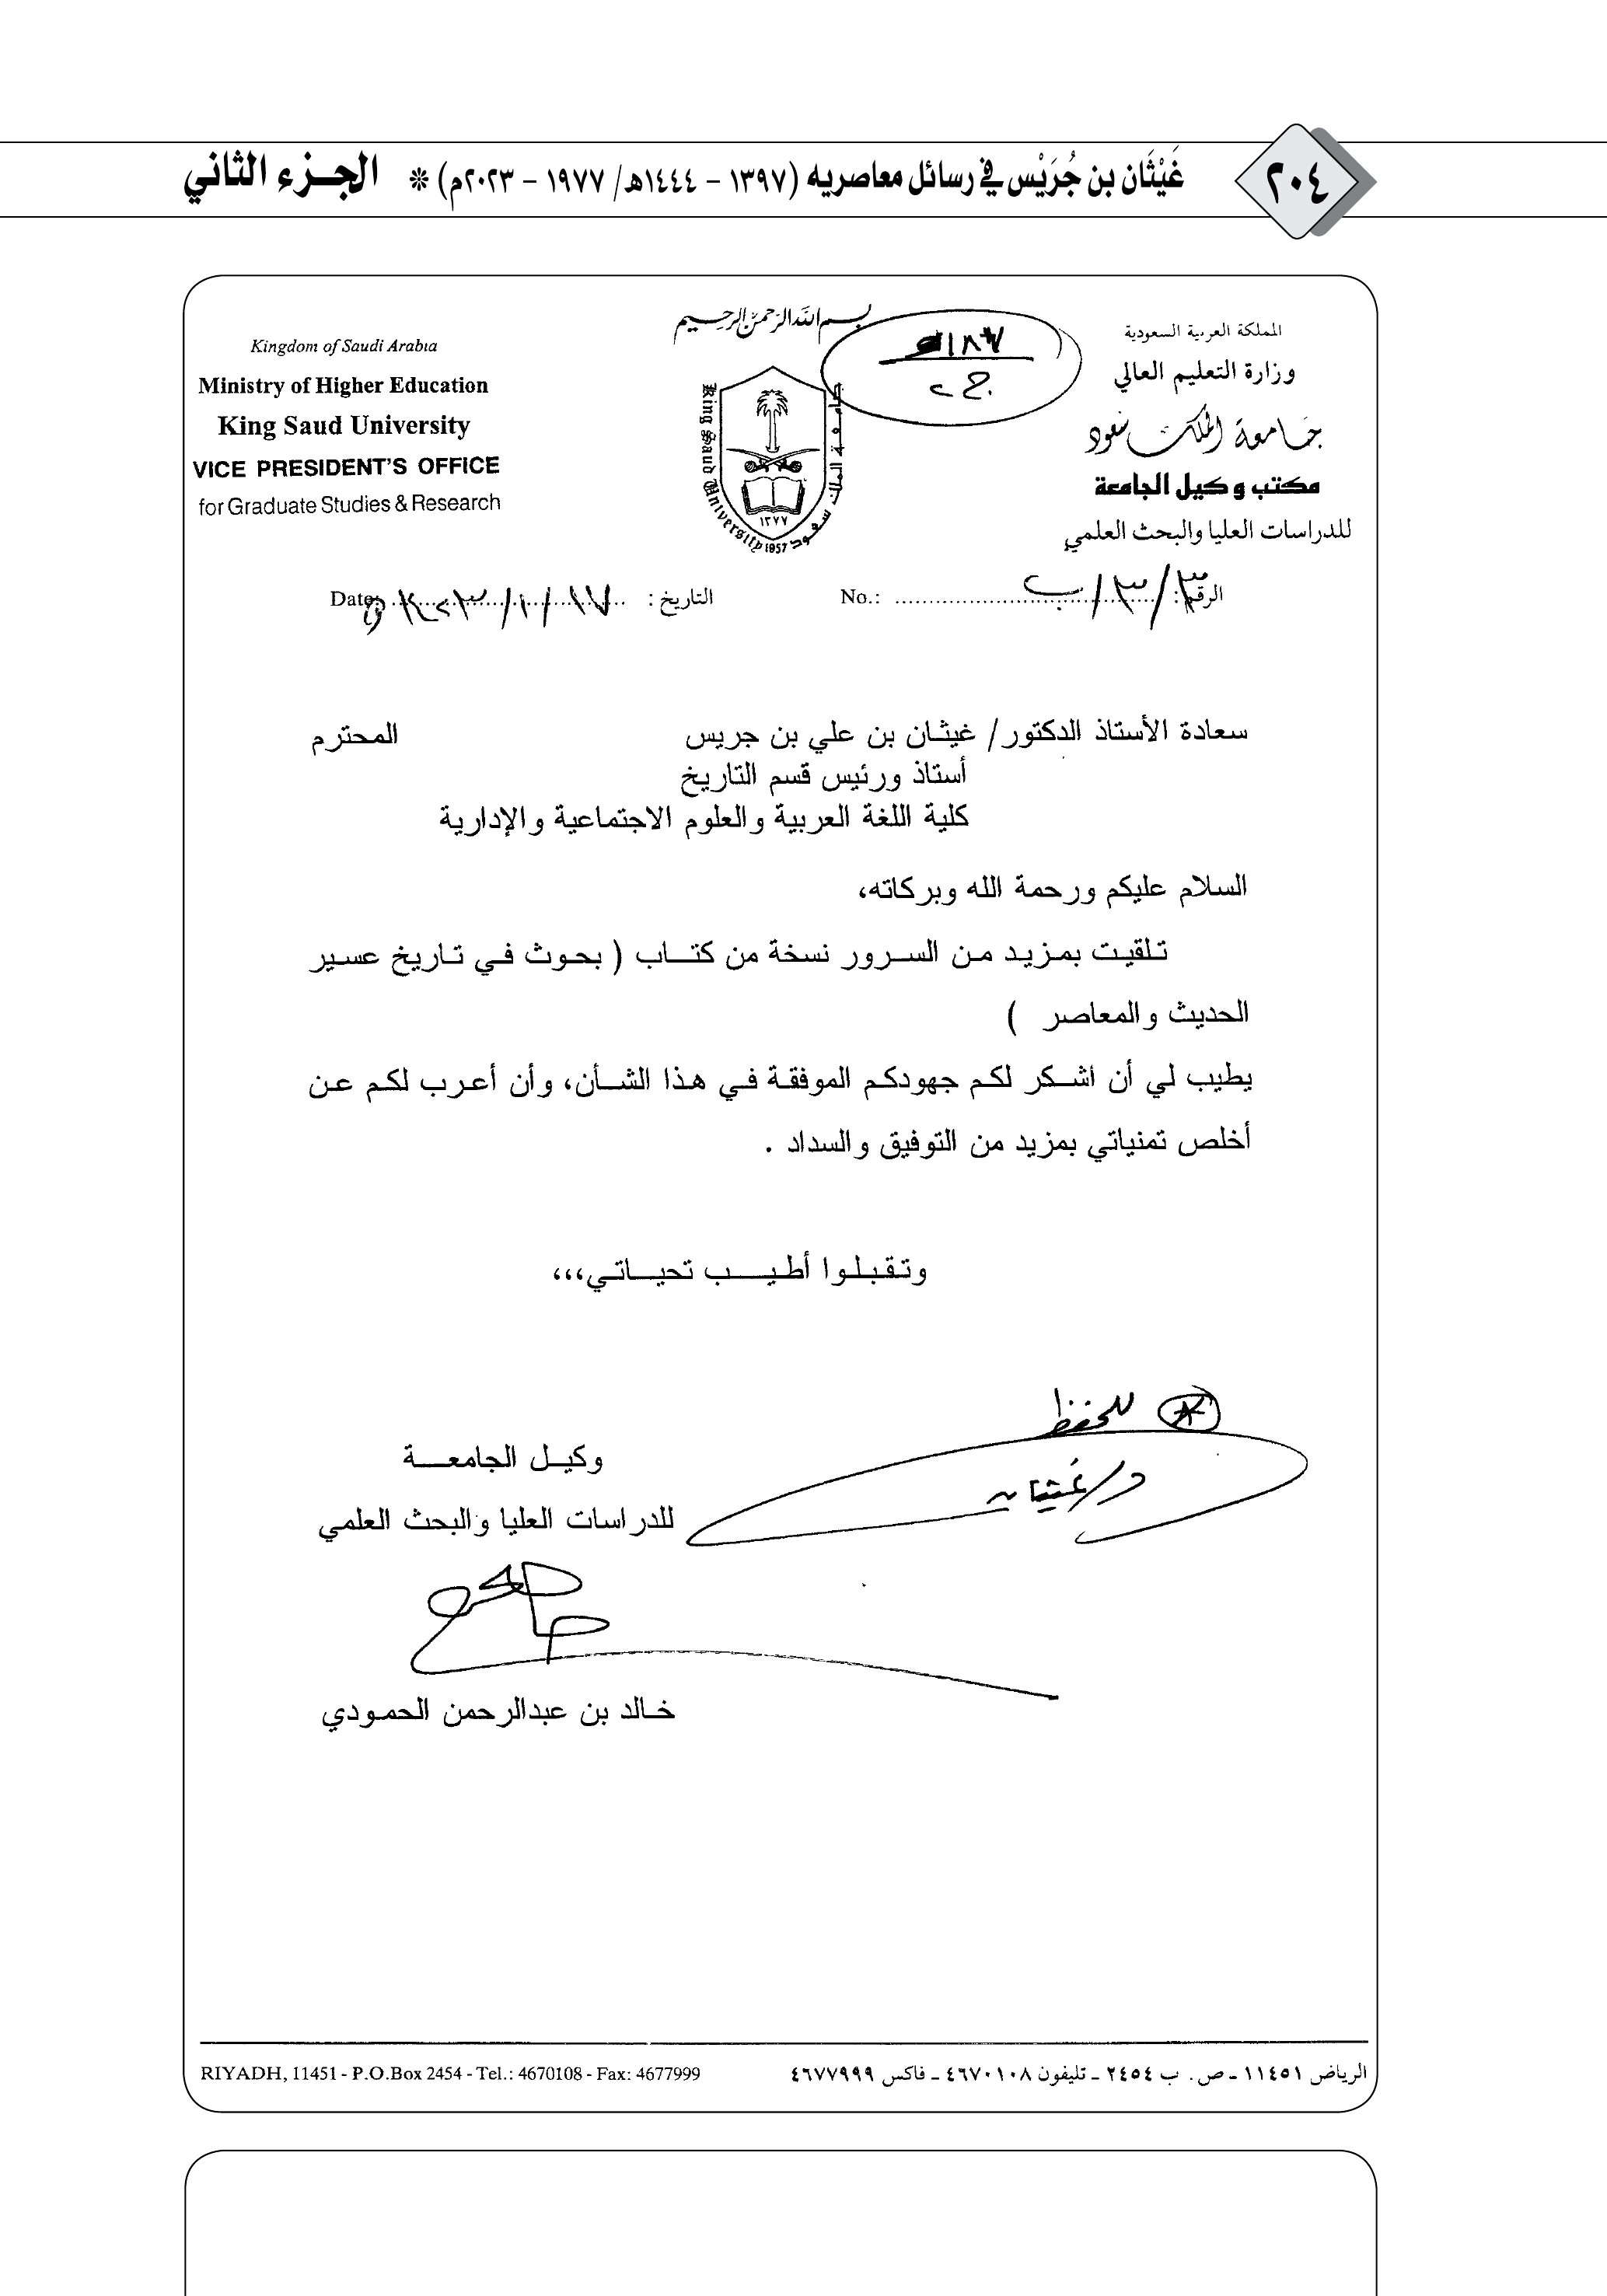 ٢٠٤
غَيْثَان بن جُرَيْس في رسائل معاصريه (١٣٩٧ - ١٤٤٤هـ/ ١٩٧٧ - ٢٠٢٣م) * الجـزء الثاني
بسم الله الرحمن الرحيم
المملكة العربية السعودية
وزارة التعليم العالي
جامعة الملك سعود
مكتب وكيل الجامعة
للدراسات العليا والبحث العلمي
Kingdom of Saudi Arabia
Ministry of Higher Education
King Saud University
VICE PRESIDENT'S OFFICE
for Graduate Studies & Research
جامعة الملك سعود
King Saud University
١٣٧٧
1957
الرقم: ٣/٣/ب No.:
التاريخ: Date:
سعادة الأستاذ الدكتور/ غيثان بن علي بن جريس المحترم
أستاذ ورئيس قسم التاريخ
كلية اللغة العربية والعلوم الاجتماعية والإدارية
السلام عليكم ورحمة الله وبركاته،
تلقيت بمزيد من السرور نسخة من كتاب ( بحوث في تاريخ عسير
الحديث والمعاصر )
يطيب لي أن اشكر لكم جهودكم الموفقة في هذا الشأن، وأن أعرب لكم عن
أخلص تمنياتي بمزيد من التوفيق والسداد .
وتقبلوا أطيب تحياتي،،،
للحفظ
د/غيثان
وكيل الجامعة
للدراسات العليا والبحث العلمي
خالد بن عبدالرحمن الحمودي
الرياض ١١٤٥١ - ص. ب ٢٤٥٤ - تليفون ٤٦٧٠١٠٨ - فاكس ٤٦٧٧٩٩٩
RIYADH, 11451 - P.O.Box 2454 - Tel.: 4670108 - Fax: 4677999